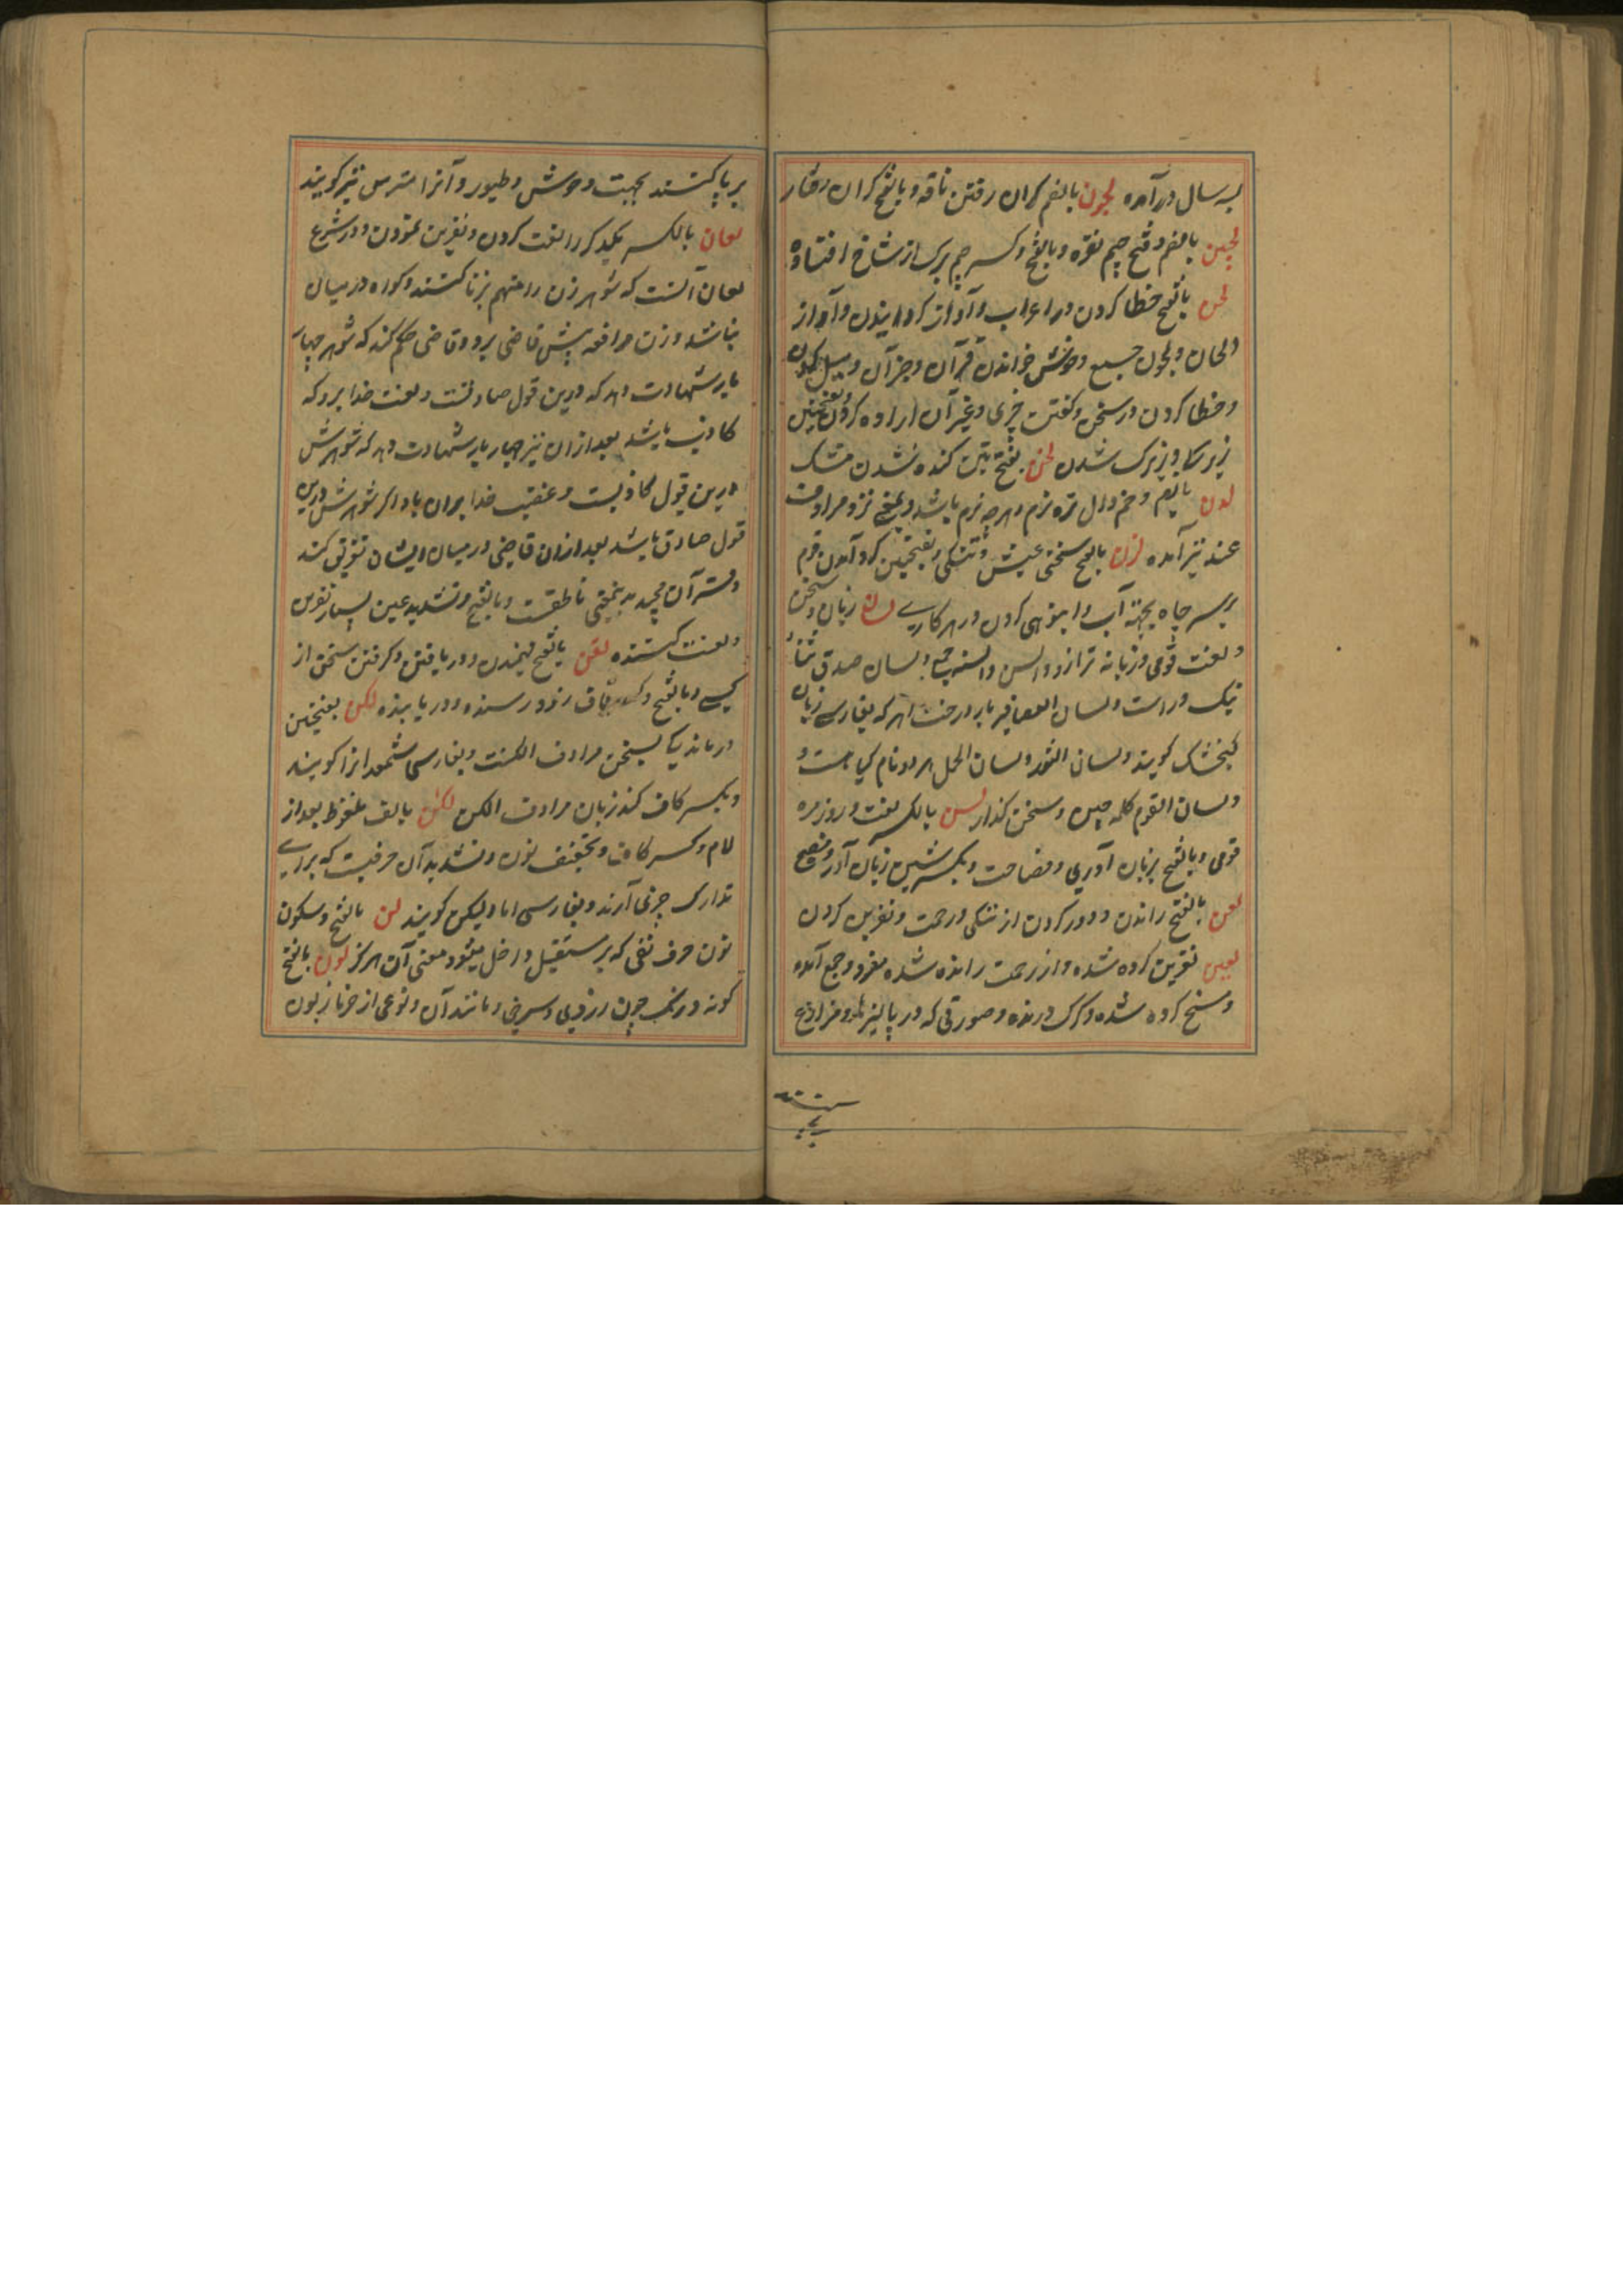 بسه سال درآمده لجون بالضم کران رفتن ناقه و بالفتح کران رفتار
لجین بالضم و فتح جیم نقره و بالفتح و کسر جیم برک از شاخ افتاده
لحن بالفتح خطا کردن در اعراب و آواز کردانیدن و آواز
و الحان و لحون جمع و خوش خواندن قرآن و جز آن و میل کردن
و خطا کردن در سخن و کفتن چیزی و غیر آن اراده کردن و بفتحتین
زیرکی و زیرک شدن لخن بفتحتین کنده شدن مشک
لدن بالفتح و ضم دال تره نرم و هر چه نرم باشد و بمعنی نزد مرادف
عند نیز آمده لزن بالفتح سختی عیش و تنکی و بفتحتین کرد آمدن قوم
بر سر چاه بجهة آب و انبوهی کردن در هر کاری لسان زبان و سخن
و لغت قومی و زبانه ترازو و السن و السنه جمع و لسان صدق ثناء
نیک و راست و لسان العصافیر بار درخت اهر که بفارسی زبان
کنجشک کویند و لسان الثور و لسان الحمل هر دو نام کیاهست و
و لسان القوم کلمه چین و سخن کذار لسن بالکسر لغت و روزمره
قومی و بالفتح بزبان آوری و فصاحت و بکسر سین زبان آور و فصیح
لعن بالفتح راندن و دور کردن از نیکی و رحمت و نفرین کردن
لعین نفرین کرده شده و از رحمت رانده شده مفرد و جمع آمده
و مسخ کرده شده و کرک درنده و صورتی که در پالیزها و مزارع
بر پا کنند بجهت وحوش و طیور و آنرا مترس نیز کویند
لعان بالکسر یکدکر را لعنت کردن و نفرین نمودن و در شرع
لعان آنست که شوهر زن را متهم بزنا کنند و کواه در میان
نباشد و زن مرافعه پیش قاضی برد و قاضی حکم کند که شوهر چهار
بار شهادت دهد که درین قول صادقست و لعنت خدا برو که
کاذب باشد بعد از ان نیز چهار بار شهادت دهد که شوهرش
درین قول کاذبست و غضب خدا بران باد اکر شوهرش درین
قول صادق باشد بعد ازان قاضی در میان ایشان تفریق کند
و قرآن مجید به بمعنی ناطقست و بالفتح و تشدید عین بسیار نفرین
و لعنت کننده لقن بالفتح فهمیدن و دریافتن و کرفتن سخن از
کسی و بالفتح و کسر قاف زود رسنده و دریابنده لکن بفتحتین
درماندکی بسخن مرادف الکنت و بفارسی شمغدانرا کویند
و بکسر کاف کند زبان مرادف الکن لکن بالف ملفوظ بعد از
لام و کسر کاف و تخفیف نون و تشدید آن حرفیست که برای
تدارک چیزی آرند و بفارسی اما و لیکن کویند لن بالفتح و سکون
نون حرف نفی که بر مستقبل داخل میشود معنی آن هرکز لون بالفتح
کونه و رنک چون زردی و سرخی و مانند آن و نوعی از خرما زبون